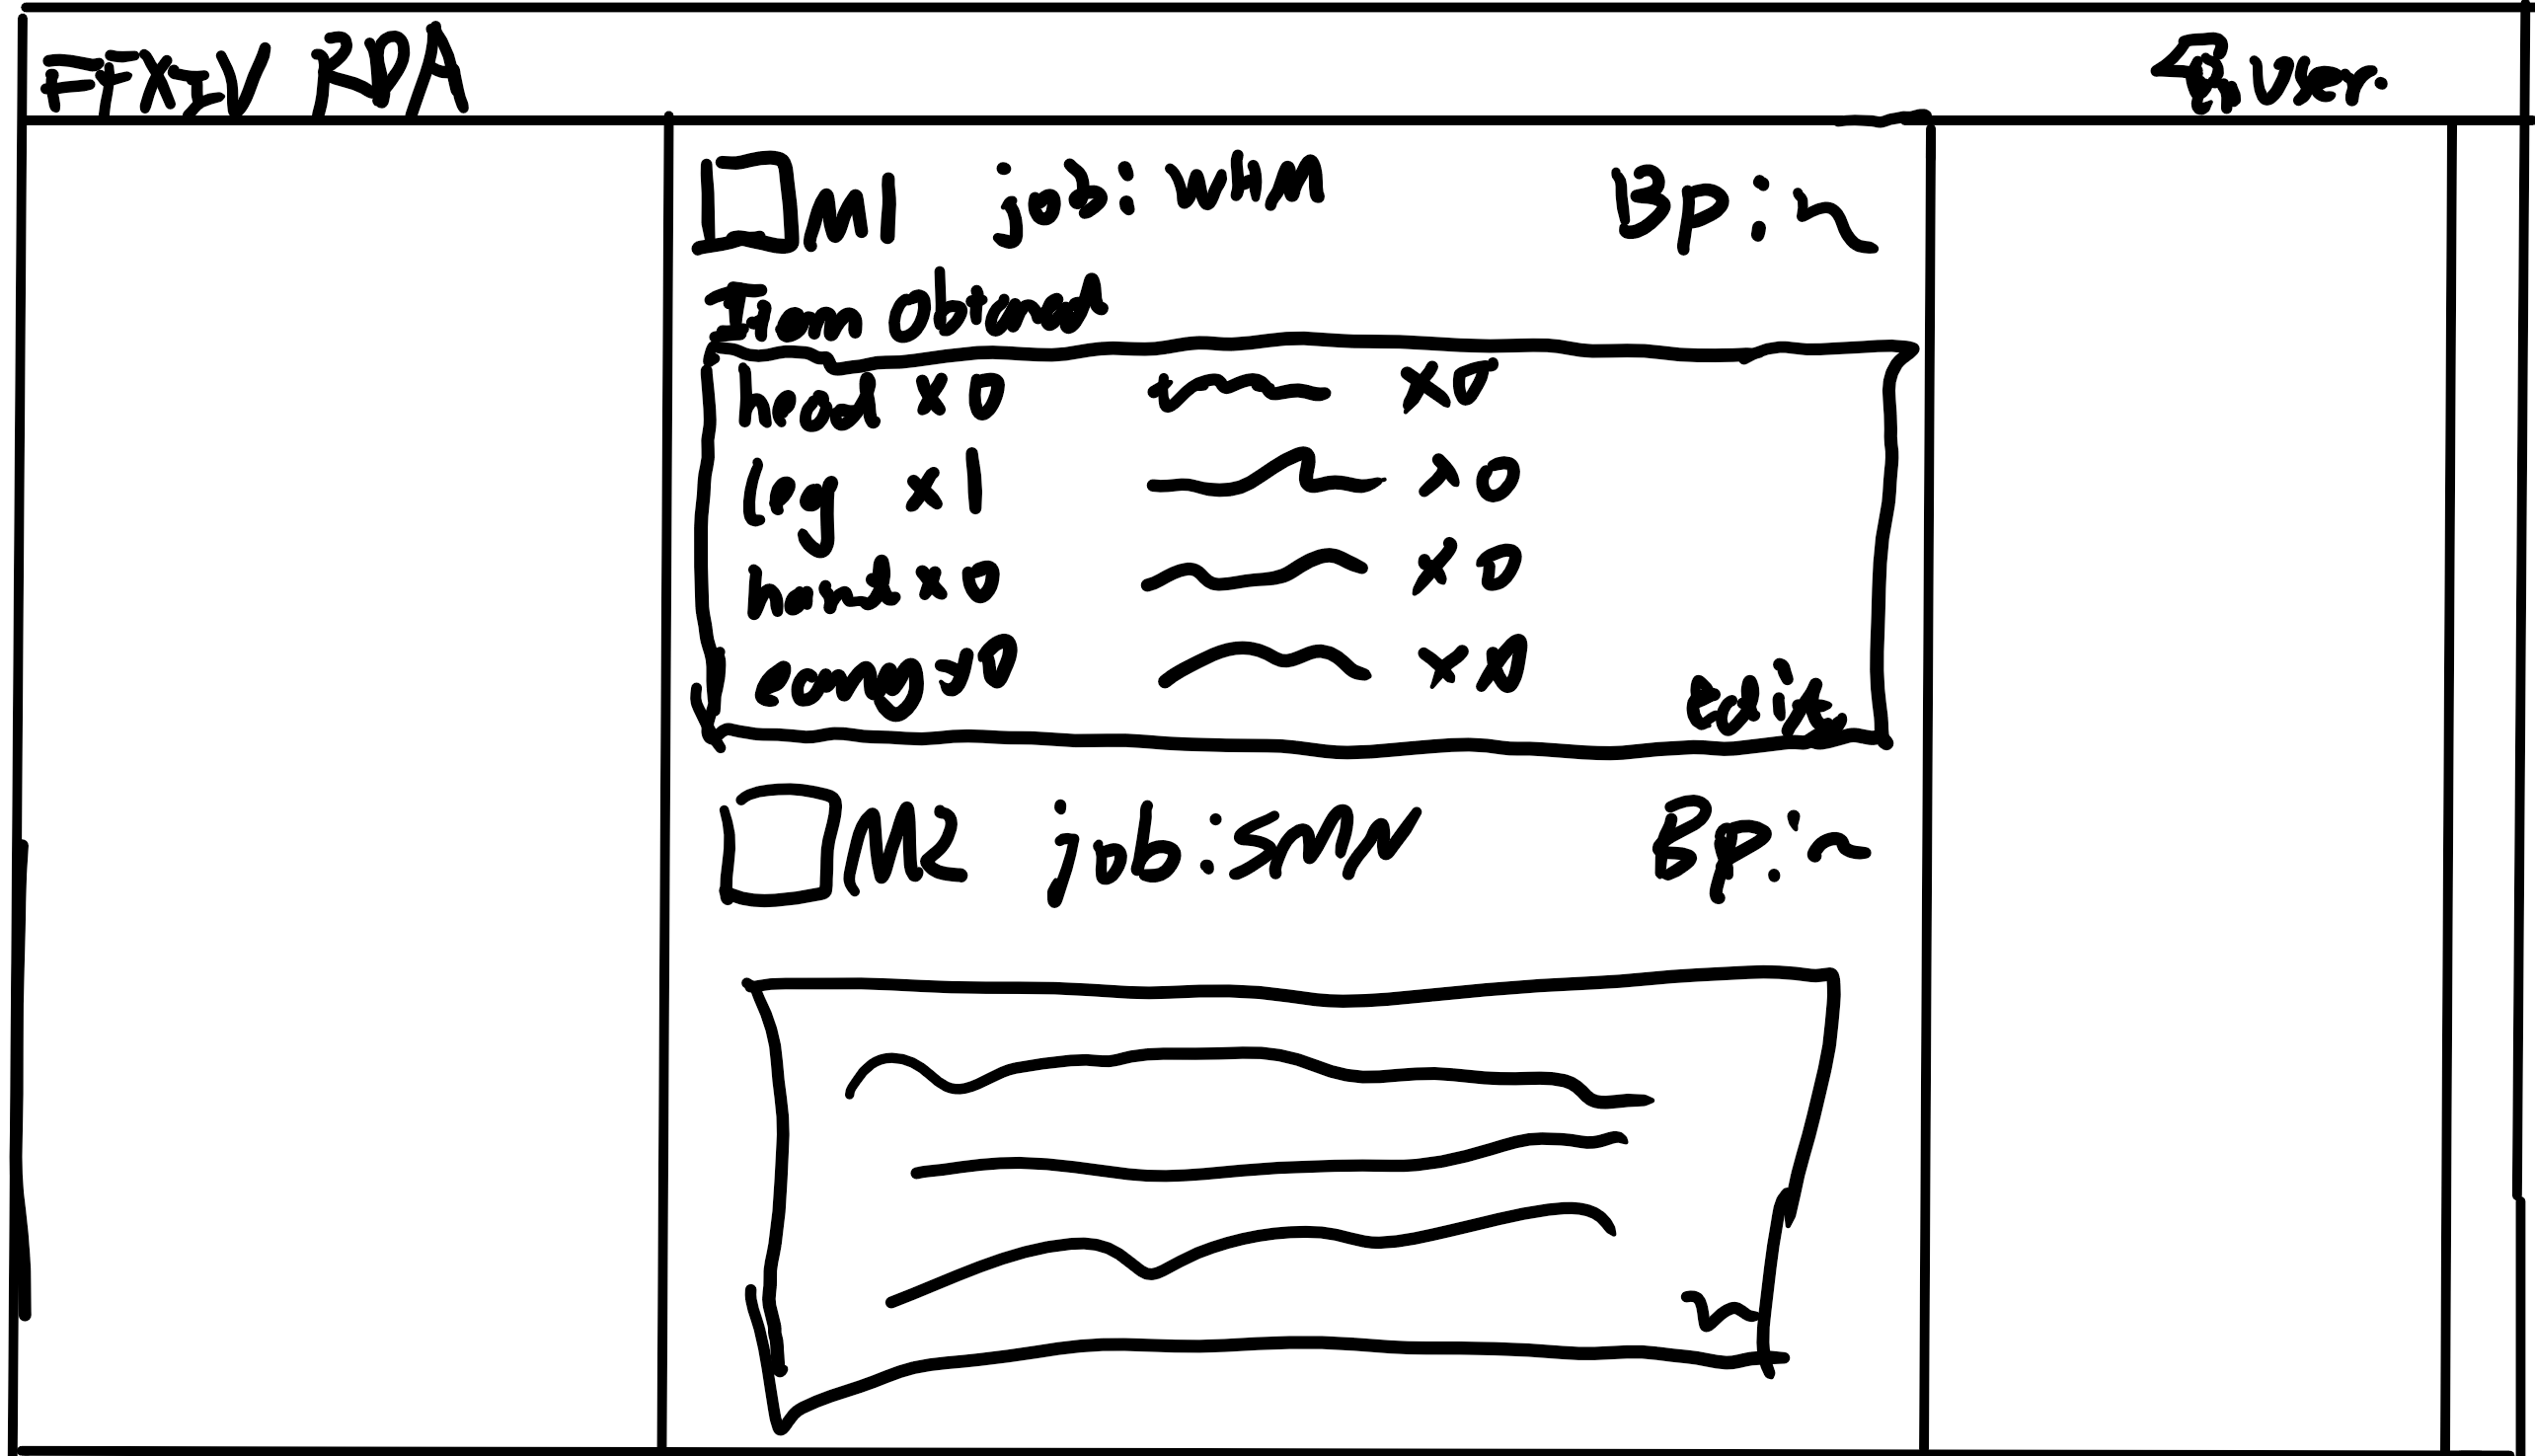 FFXIV RDA
User.
M1 job: WHM BP:
Item Obtained
head x0 x0
leg x1 x0
hand x0 x0
earring x0 x0
Edit
M2 job: SMN BP: